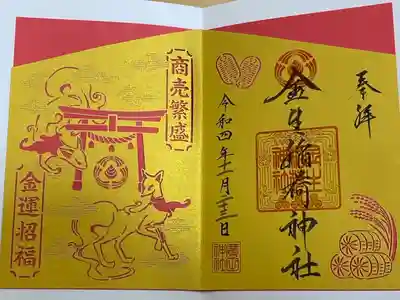 奉拝
金生稲荷神社
令和四年十一月二十三日
商売繁盛
金運招福